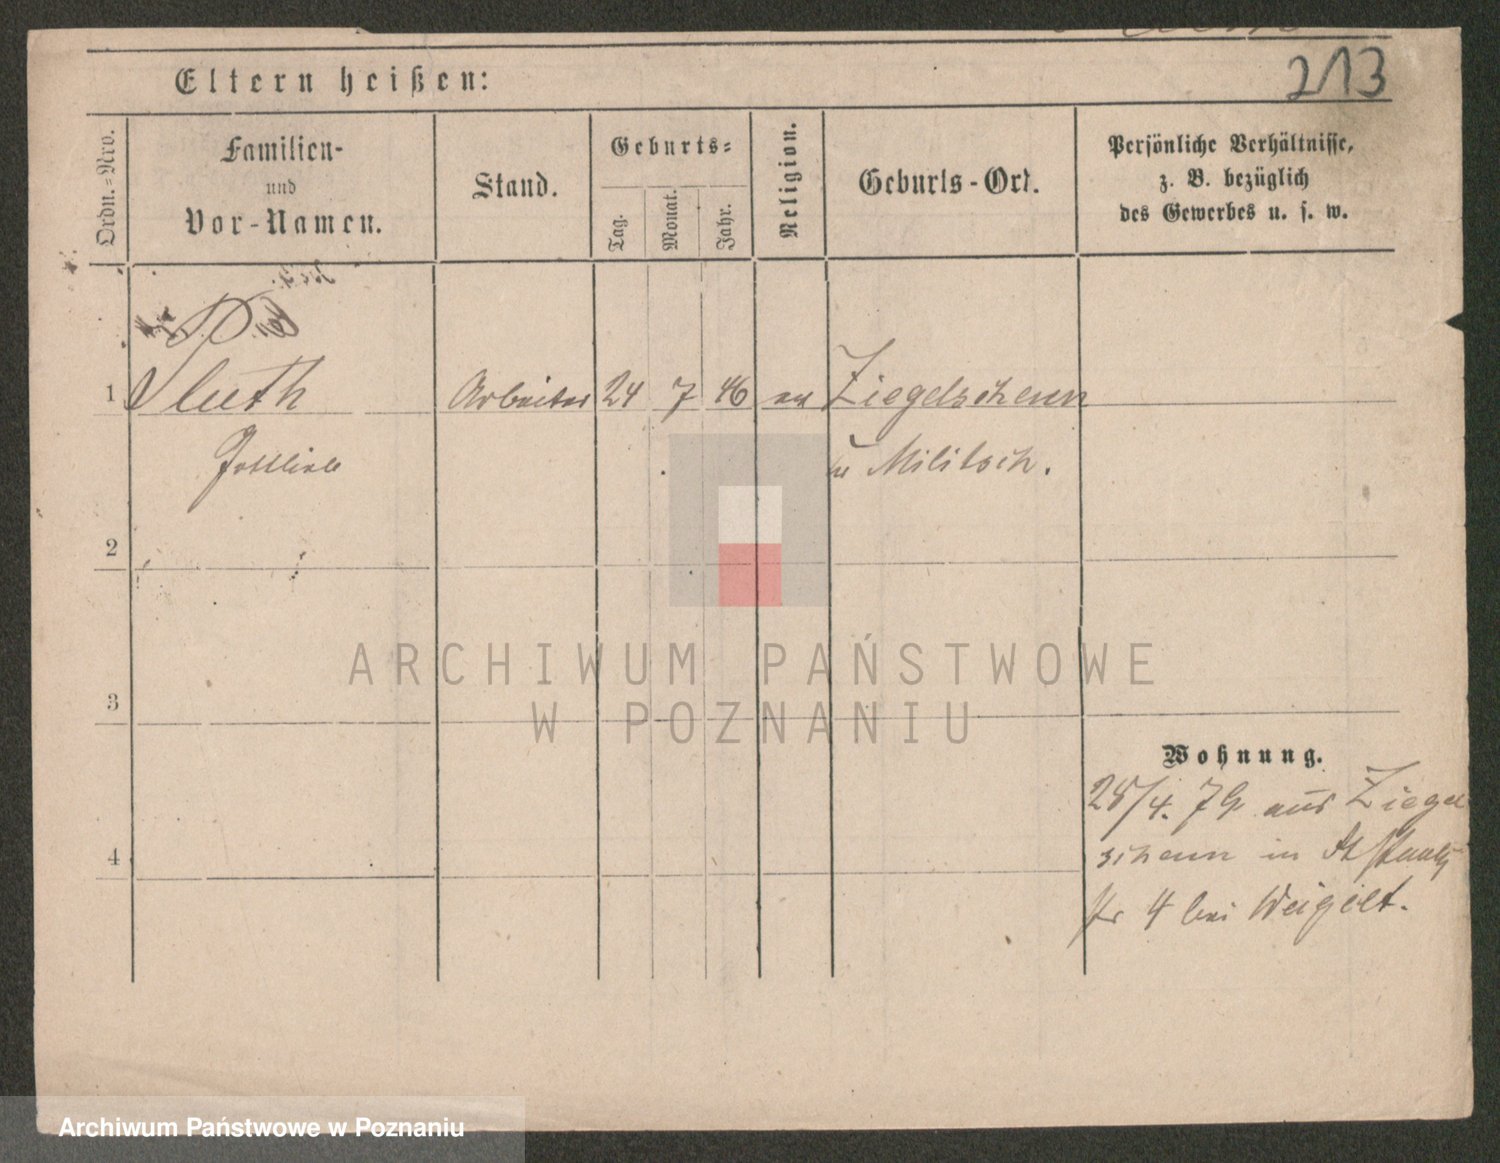 213
Eltern heißen:
Ordn.=Nro.
Familien-
und
Vor-Namen.
Stand.
Geburts=
Tag.
Monat.
Jahr.
Religion.
Geburts-Ort.
Persönliche Verhältnisse,
z. B. bezüglich
des Gewerbes u. s. w.
1 Arbeiter 24 7 46 Ziegelscheun
Gottlieb Militsch.
2
3
4
Wohnung.
28/4. 79 aus Ziegel
scheun in
4 bei Weigelt.
ARCHIWUM PAŃSTWOWE
W POZNANIU
Archiwum Państwowe w Poznaniu